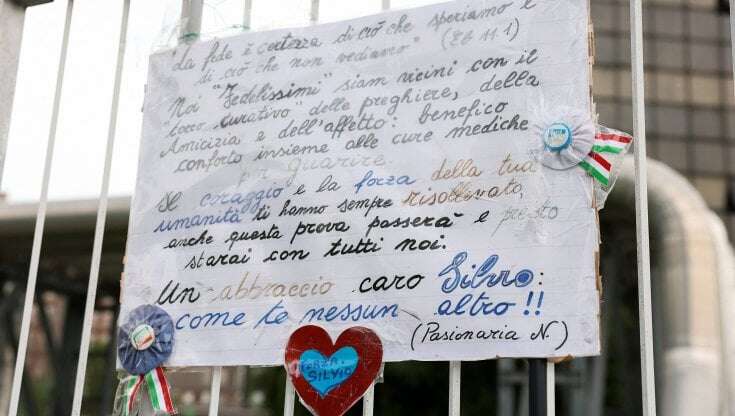 "La fede è certezza di ciò che speriamo e
di ciò che non vediamo" (Eb 11.1)
Noi "Fedelissimi" siam vicini con il
tocco "curativo" delle preghiere, della
Amicizia e dell'affetto: benefico
conforto insieme alle cure mediche
per guarire.
Il coraggio e la forza della tua
umanità ti hanno sempre risollevato,
anche questa prova passerà e presto
starai con tutti noi.
Un abbraccio caro Silvio:
come te nessun altro!!
(Pasionaria N.)
FORZA
SILVIO